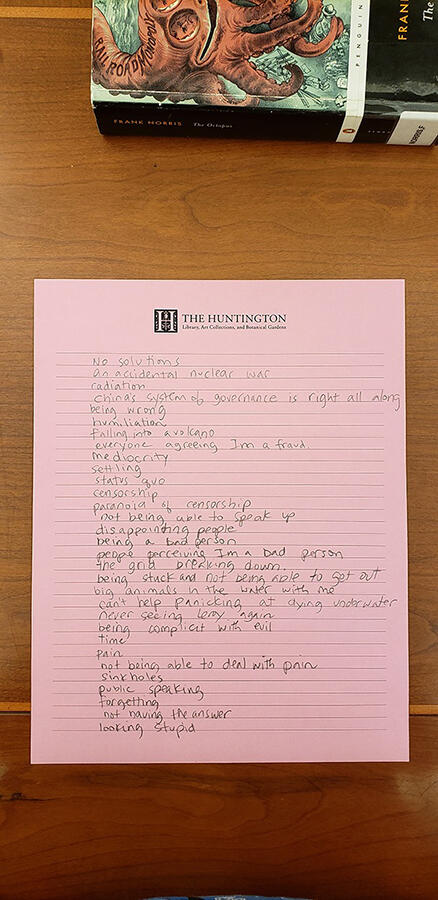 RAILROAD MONOPOLY
PENGUIN
FRANK
The
FRANK NORRIS The Octopus
H
THE HUNTINGTON
Library, Art Collections, and Botanical Gardens
No solutions
an accidental nuclear war
radiation
China's system of governance is right all along
being wrong
humiliation
falling into a volcano
everyone agreeing I'm a fraud
mediocrity
settling
status quo
censorship
paranoia of censorship
not being able to speak up
disappointing people
being a bad person
people perceiving I'm a bad person
the grid breaking down.
being stuck and not being able to get out
big animals in the water with me
can't help panicking at dying underwater
never seeing again
being complicit with evil
time
pain
not being able to deal with pain
sinkholes
public speaking
forgetting
not having the answer
looking stupid